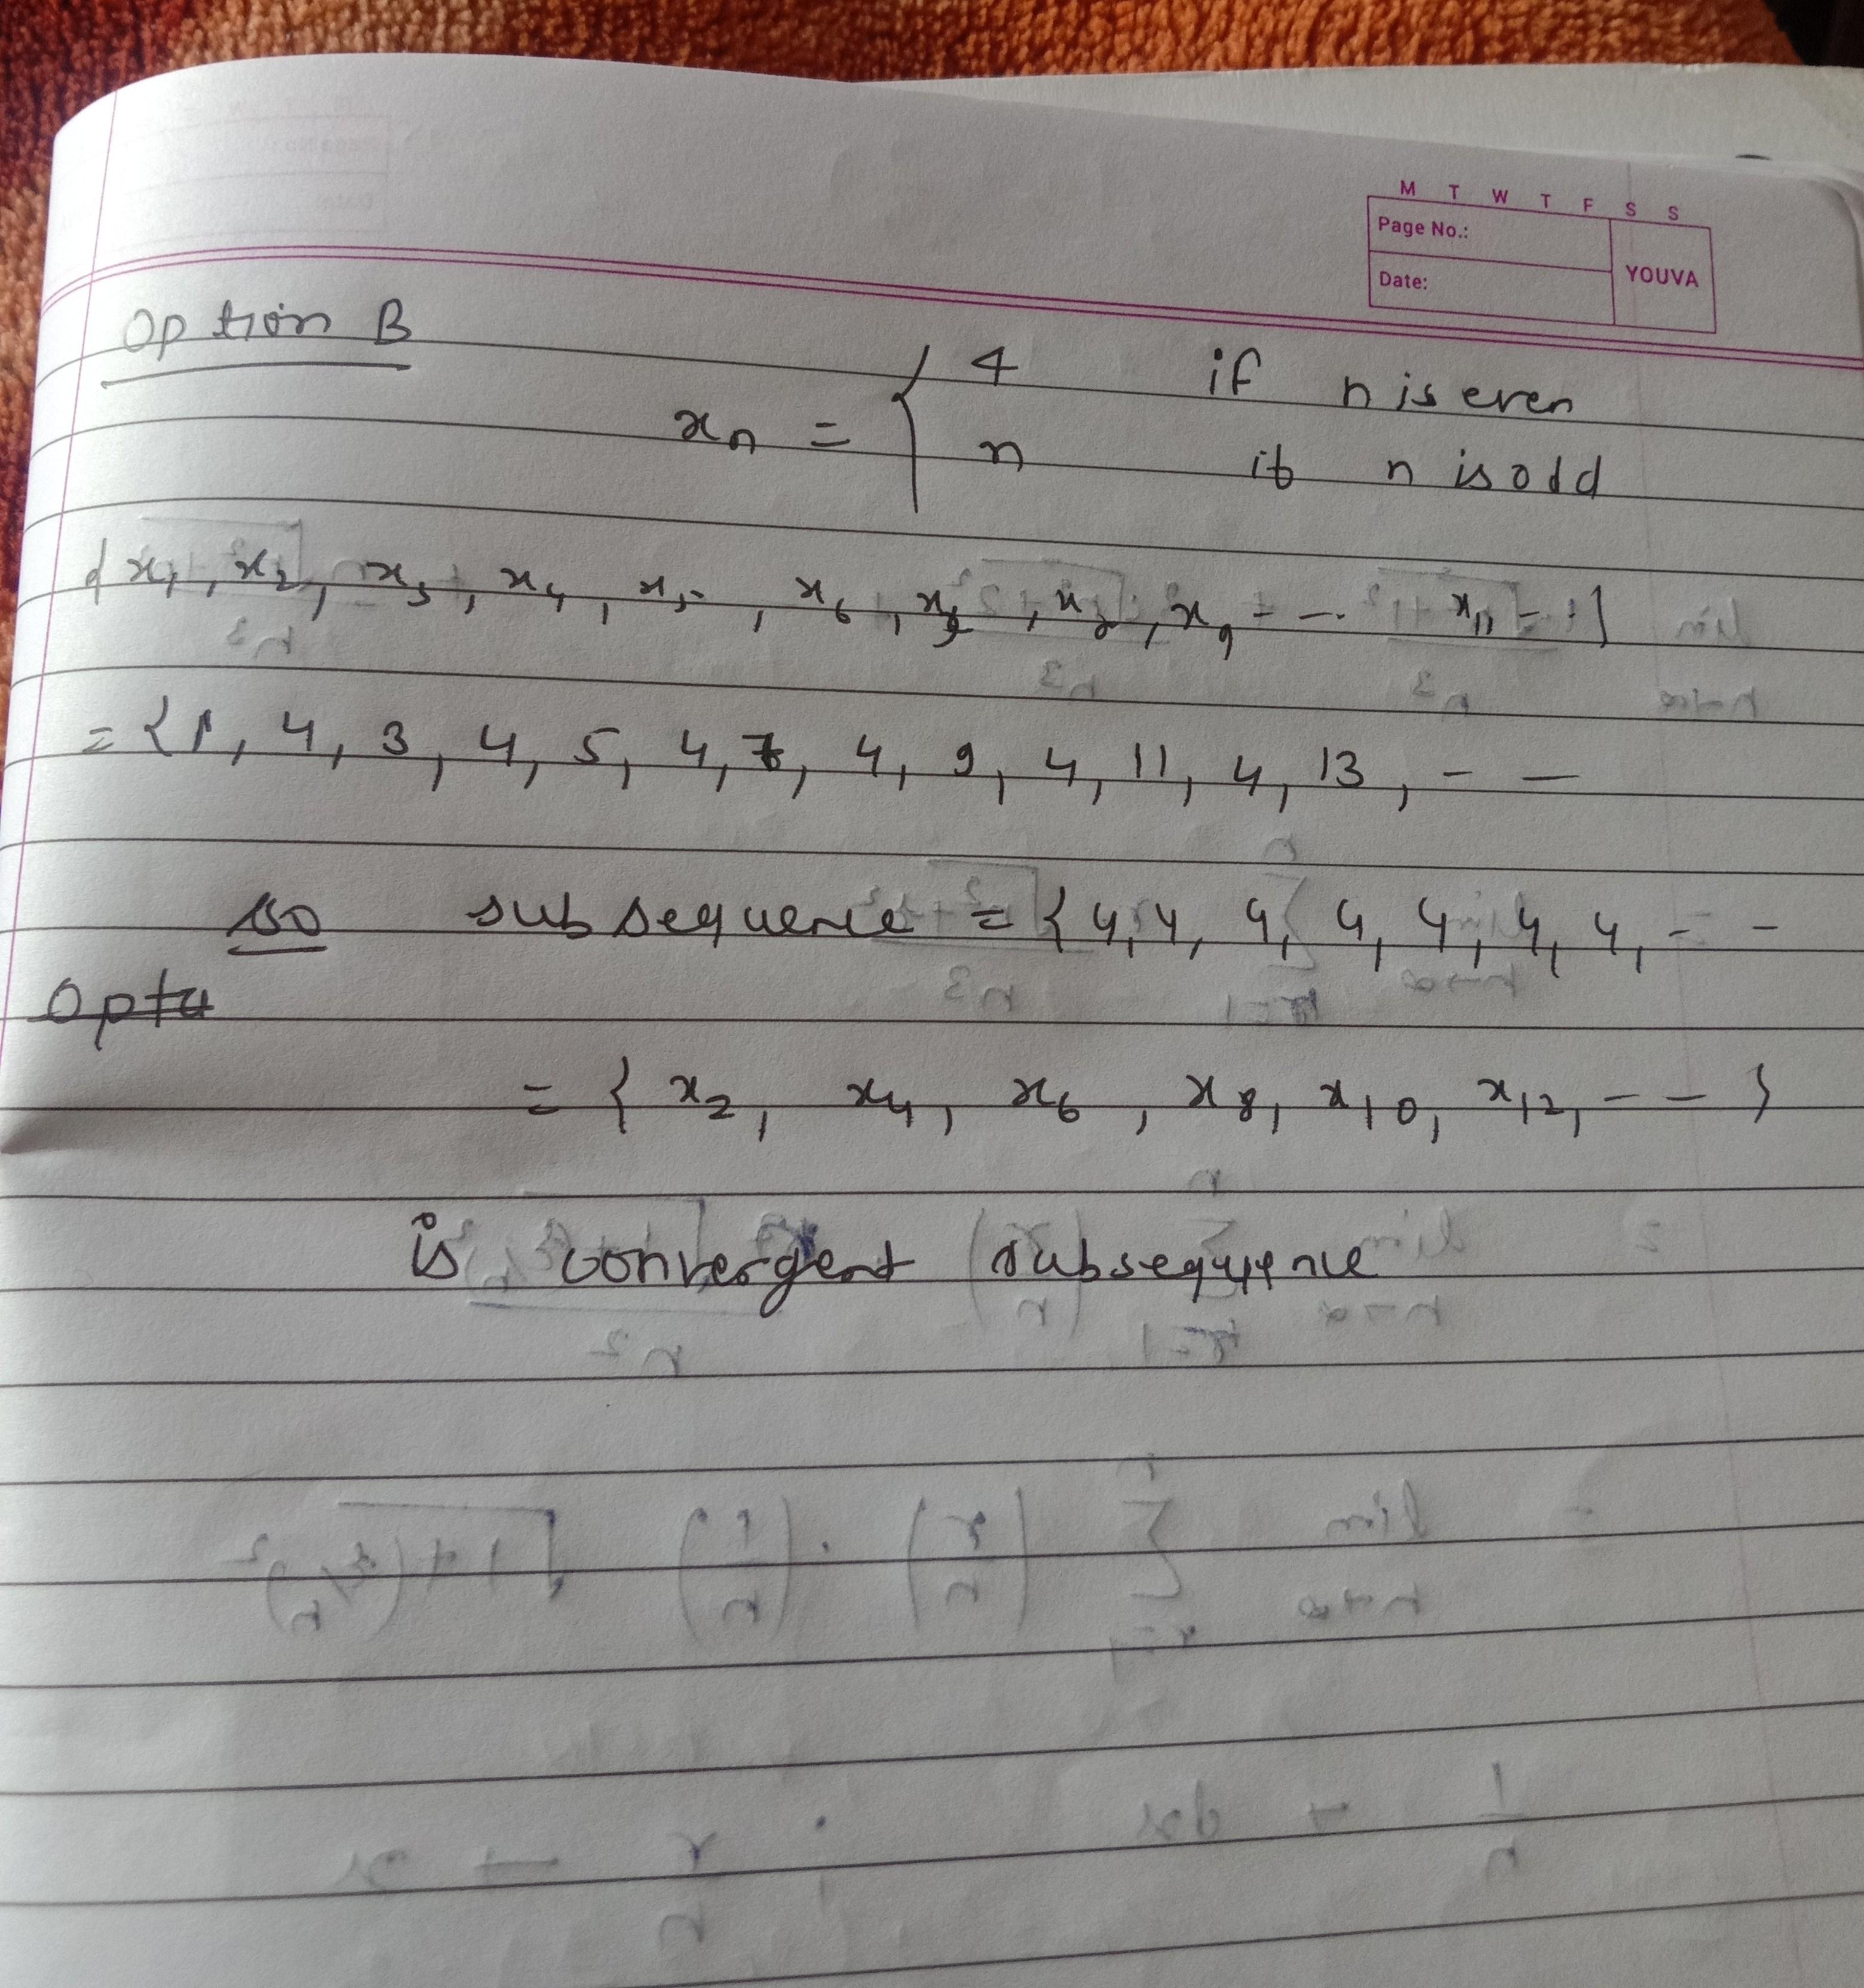 M T W T F S S
Page No.:
Date:
YOUVA
Option B
xₙ = { 4 if n is even
n if n is odd
{x₁, x₂, x₃, x₄, x₅, x₆, x₇, x₈, x₉ - - - x₁₁ - - }
= {1, 4, 3, 4, 5, 4, 7, 4, 9, 4, 11, 4, 13, - -
so subsequence = {4, 4, 4, 4, 4, 4, 4, - -
= { x₂, x₄, x₆, x₈, x₁₀, x₁₂, - - }
is convergent subsequence